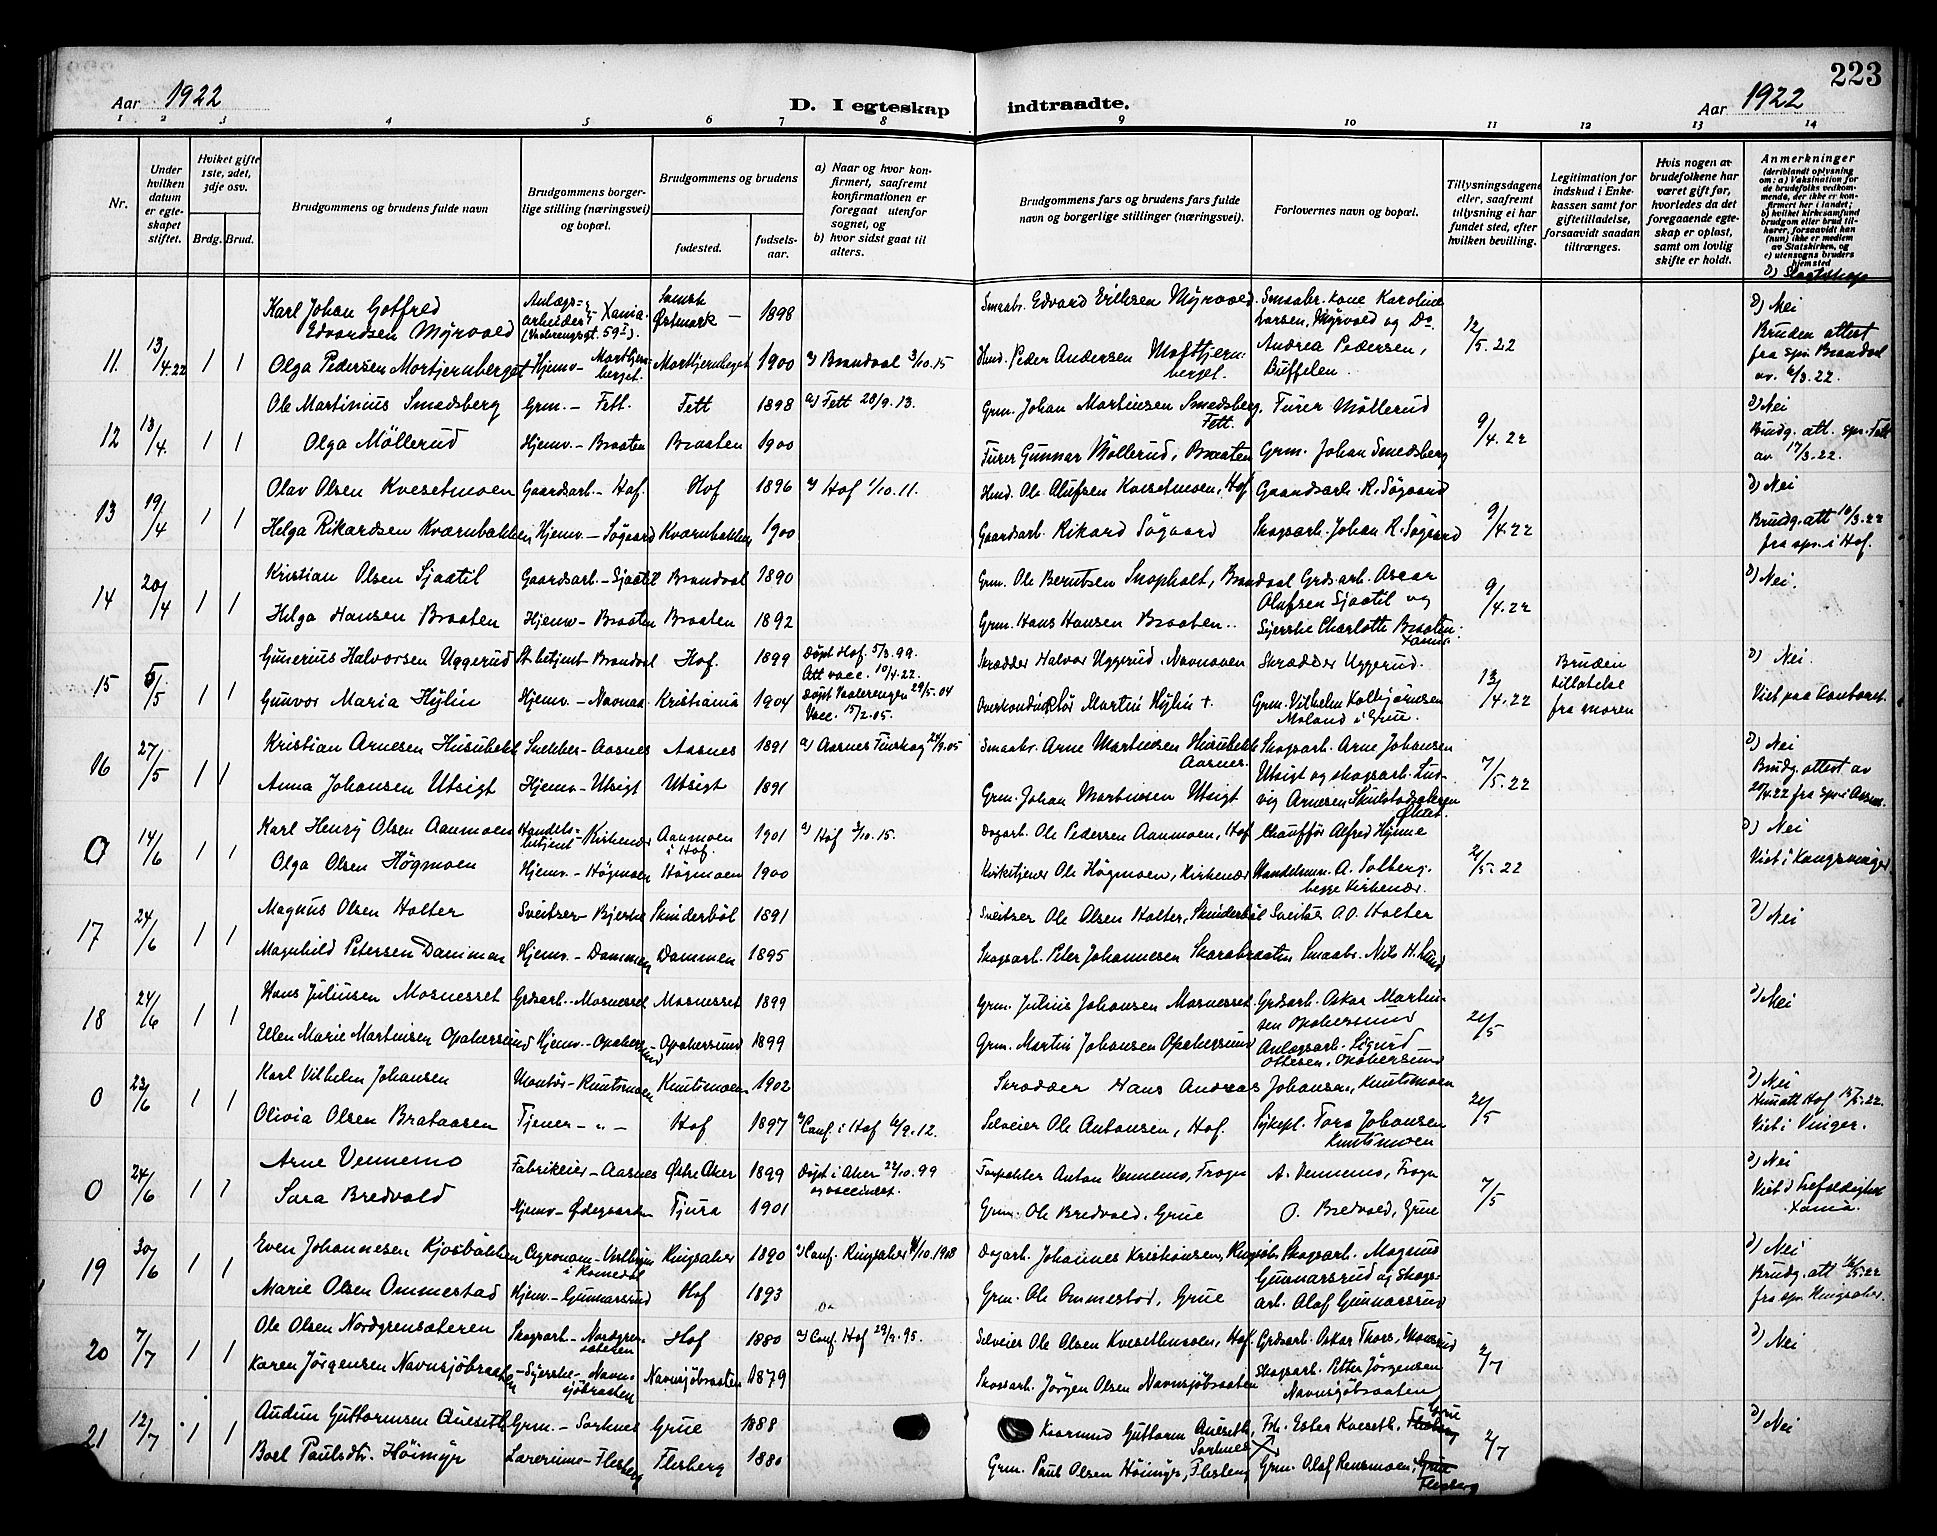 223
Aar 1922
D. I egteskap indtraadte.
Aar 1922
1 2 3 4 5 6 7 8 9 10 11 12 13 14
Nr.
Under hvilken datum er egteskapet stiftet.
Hviket gifte 1ste, 2det, 3dje osv.
Brdg. Brud.
Brudgommens og brudens fulde navn
Brudgommens borgerlige stilling (næringsvei) og bopæl.
Brudgommens og brudens
fødested.
fødselsaar.
a) Naar og hvor konfirmert, saafremt konfirmationen er foregaat utenfor sognet, og
b) hvor sidst gaat til alters.
Brudgommens fars og brudens fars fulde navn og borgerlige stillinger (næringsvei).
Forlovernes navn og bopæl.
Tillysningsdagene eller, saafremt tillysning ei har fundet sted, efter hvilken bevilling.
Legitimation for indskud i Enkekassen samt for giftetilladelse, forsaavidt saadan tiltrænges.
Hvis nogen av brudefolkene har været gift før, hvorledes da det foregaaende egteskap er opløst, samt om lovlig skifte er holdt.
Anmerkninger (deriblandt oplysning om: a) Vaksination for de brudefolks vedkommende, der ikke er konfirmert her i landet; b) hvilket kirkesamfund brudgom eller brud tilhører, forsaavidt han (hun) ikke er medlem av Statskirken, og c) utensogns bruders hjemsted
d) Slegtskap
11. 13/4.22 1 1
Karl Johan Gotfred Edvardsen Myrvold
Anlægsarbeider - Xania. 59 I).
Østmark - 1898
Smaabr. Edvard Eriksen Myrvold
Smaabr. kone Karoline Larsen, Myrvold og Do.
12/5.22
d) Nei
Bruden attest fra spr. Brandval av. 6/3.22.
Olga Pedersen Mortjernberget Hjemv - Mortjernberget. Mortjernberget 1900 a) Brandval 3/10.15
Peder Andersen Mortjernberget.
Andrea Pedersen, Buffelen.
12 13/4. 1 1
Ole Martinius Smedsberg Grm. - Fett. Fett 1898 a) Fett 28/9.13.
Grm. Johan Martinsen Smedsberg, Fett. Furer Möllerud
9/4.22
d) Nei
Brudg. att. spr. Fett av 17/3.22.
Olga Möllerud Hjemv - Braaten Braaten 1900
Furer Gunnar Möllerud, Braaten Grm. Johan Smedsberg
13 19/4 1 1
Olav Olsen Kvesetmoen Gaardsarb. - Hof. Hof 1896 a) Hof 1/10.11.
Ole Olufsen Kvesetmoen, Hof Gaardsarb. R. Søgaard
9/4.22
d) Nei
Brudg. att 10/3.22 fra spr. i Hof.
Helga Rikardsen Kværnbakken Hjemv - Søgaard Kværnbakken 1900
Gaardsarb. Rikard Søgaard Skogsarb. Johan R. Søgaard
14 20/4 1 1
Kristian Olsen Sjaatil Gaardsarb. - Sjaatil Brandval 1890
Grm. Ole Berntsen Snopholt, Brandval Grdsarb. Oscar Olufsen Sjaatil og
9/4.22
d) Nei.
Helga Hansen Braaten Hjemv - Braaten Braaten 1892
Grm. Hans Hansen Braaten.
Syerske Charlotte Braaten. Xania.
15 5/5 1 1
Gunerius Halvorsen Uggerud St. betjent - Brandval Hof. 1899 Døpt Hof. 5/3.99. Att vacc. 10/4.22.
Skrædder Halvor Uggerud. Navnaaen Skrædder Uggerud.
13/4.22
Bruden tilladelse fra moren
d) Nei.
Viet paa Contoret.
Gunvor Maria Hylin Hjemv. - Navnaa. Kristiania 1904 Døpt Vaalerengen 29/5.04 Vacc. 15/2.05.
Overkonduktør Martin Hylin + Grm. Vilhelm Kolbjørnsen Moland i Grue.
16 27/5 1 1
Kristian Arnesen Husubekk Snekker - Aasnes Aasnes 1891 a) Aasnes Finskog 24/9.05
Smaabr. Arne Martinsen Husubekk Aasnes. Skogsarb. Arne Johansen Utsigt og skogsarb. Ludvig Arnesen
7/5.22
d) Nei
Brudg. attest av 20/4.22 fra spr. i Aasnes.
Anna Johansen Utsigt Hjemv - Utsigt Utsigt 1891
Grm. Johan Martinsen Utsigt
0 14/6 1 1
Karl Henry Olsen Aanmoen Handelsbetjent - Kirkenær Aanmoen i Hof 1901 a) Hof 3/10.15.
Dagarb. Ole Pedersen Aanmoen, Hof Chauffør Alfred Hynne
21/5.22
d) Nei
Viet i Kongsvinger
Olga Olsen Högmoen Hjemv. - Högmoen Högmoen 1900
Kirketjener Ole Högmoen, Kirkenær Handelsm. A. Solberg. begge Kirkenær.
17 24/6 1 1
Magnus Olsen Holter Sveitser - Bjerke Skinderböl 1891
Sveitser Ole Olsen Holter, Skinderböl Sveitser A.O. Holter
d) Nei
Magnhild Petersen Dammen Hjemv. - Dammen Dammen 1895
Skogsarb. Peter Johannesen Skarabraaten Smaabr. Nils H. Lund
18 24/6 1 1
Hans Juliusen Mosnesset Grdsarb. - Mosnesset Mosnesset 1899
Grm. Julius Johansen Mosnesset. Grdsarb. Oskar Martinsen Opakersund
21/5
d) Nei
Ellen Marie Martinsen Opakersund Hjemv. - Opakersund Opakersund 1899
Grm. Martin Johansen Opakersund Anlægsarb. Sigurd Ottesen, Opakersund
0 23/6 1 1
Karl Vilhelm Johansen Montør - Knutsmoen Knutsmoen 1902
Skrædder Hans Andreas Johansen, Knutsmoen
21/5
d) Nei
att Hof 15/5.22.
Viet i Vinger.
Olivia Olsen Brataasen Tjener - " - Hof 1897 a) Conf. i Hof 6/9.12.
Selveier Ole Antonsen, Hof. Sykepl. Tora Johansen Knutsmoen
0 24/6 1 1
Arne Vennemo Fabrikeier - Aasnes Østre Aker 1899 Døpt i Aker 22/10.99 og vaccineret.
Anton Vennemo, Frogn A. Vennemo, Frogn
7/5
d) Nei
Viet i Trefoldighet Xania.
Sara Bredvold Hjemv - Ødegaarden Tjura 1901
Grm. Ole Bredvold, Grue O. Bredvold, Grue
19 30/6 1 1
Even Johannesen Kjosbakken Agronom - i Romedal Ringsaker 1890 a) Conf. Ringsaker 4/10.1908
Dagarb. Johannes Kristiansen, Skogsarb. Magnus Gunnarsrud og Skogsarb. Olaf Gunnarsrud
d) Nei
Brudg. att 16/5.22 fra spr. Ringsaker.
Marie Olsen Ommestad Hjemv - Gunnarsrud Hof 1893
Grm. Ole Ommestad, Grue
20 7/7 1 1
Ole Olsen Nordgrensæteren Skogsarb - Nordgrensæteren Hof 1880 a) Conf. Hof 29/9.95.
Selveier Ole Olsen Kvesethmoen, Hof. Grdsarb. Oskar Thors, Monsrud
2/7
d) Nei
Karen Jørgensen Navnsjöbraaten - Syerske - Navnsjöbraaten Navnsjöbraaten 1879
Skogsarb. Jörgen Olsen Navnsjöbraaten Skogsarb. Petter Jörgensen Navnsjöbraaten
21 12/7 1 1
Audun Guttormsen Qveseth Grm. - Sorknes Grue 1888
Guttorm Qveseth, Sorknes Frk. Ester Kveseth. Flesberg Grue
2/7
d) Nei
Boel Paulsdtr. Höimyr Lærerinne - Flesberg Flesberg 1880
Grm. Paul Olsen Höimyr, Flesberg Grm. Olaf Rensmoen, Grue Flesberg